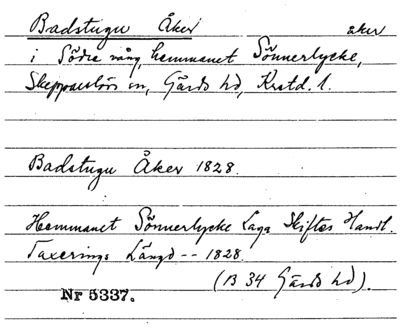 Badstugu Åker åker
i Södra vång, hemmanet Sönnerlycke,
Skepparslövs sn, Gärds hd, Krstd. l.
Badstugu Åker 1828.
Hemmanet Sönnerlycke Laga Skiftes Handl.
Taxerings Längd -- 1828.
(B 34 Gärds hd).
Nr 5337.